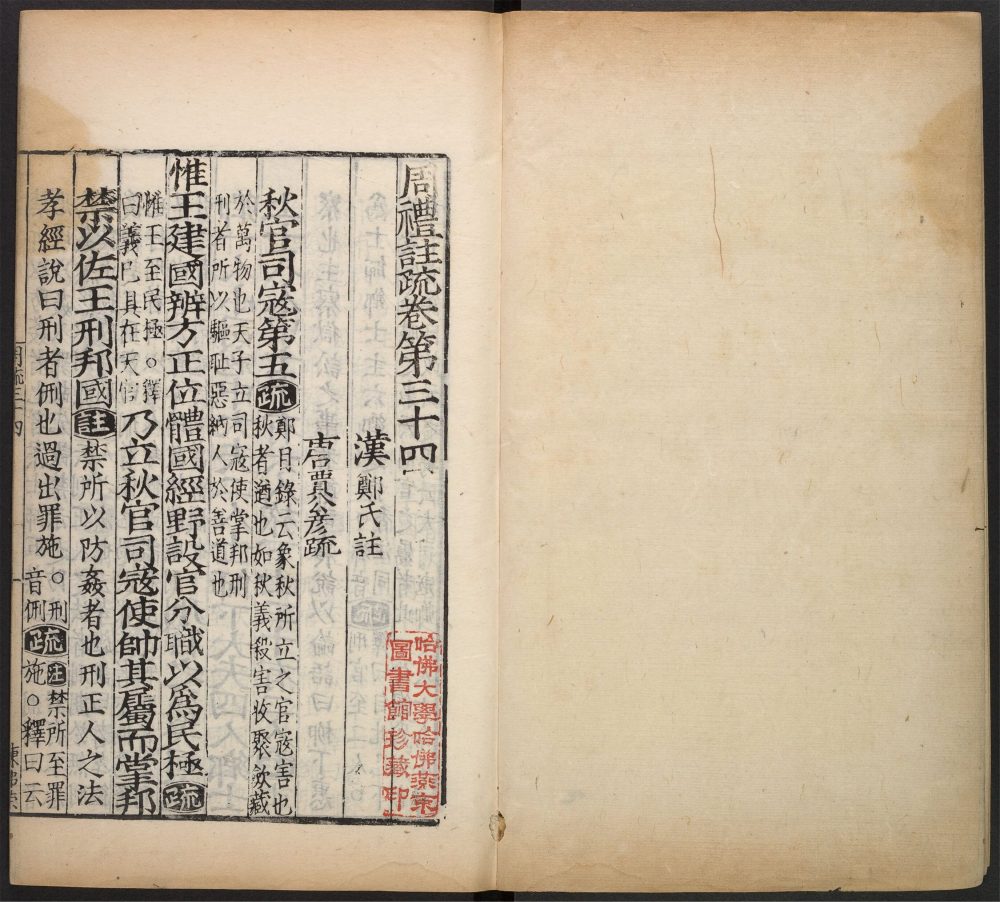 周禮註疏卷第三十四
漢鄭氏註
唐賈公彥疏
秋官司寇第五疏鄭目錄云象秋所立之官寇害也
秋者遒也如秋義殺害收聚斂藏
於萬物也天子立司寇使掌邦刑
刑者所以驅恥惡納人於善道也
惟王建國辨方正位體國經野設官分職以爲民極疏
惟王至民極○釋
曰義已具在天官乃立秋官司寇使帥其屬而掌邦
禁以佐王刑邦國註禁所以防姦者也刑正人之法
孝經說曰刑者侀也過出罪施○刑
音侀疏注禁所至罪
施○釋曰云
周疏三十四
哈佛大學哈佛燕京
圖書館珍藏印